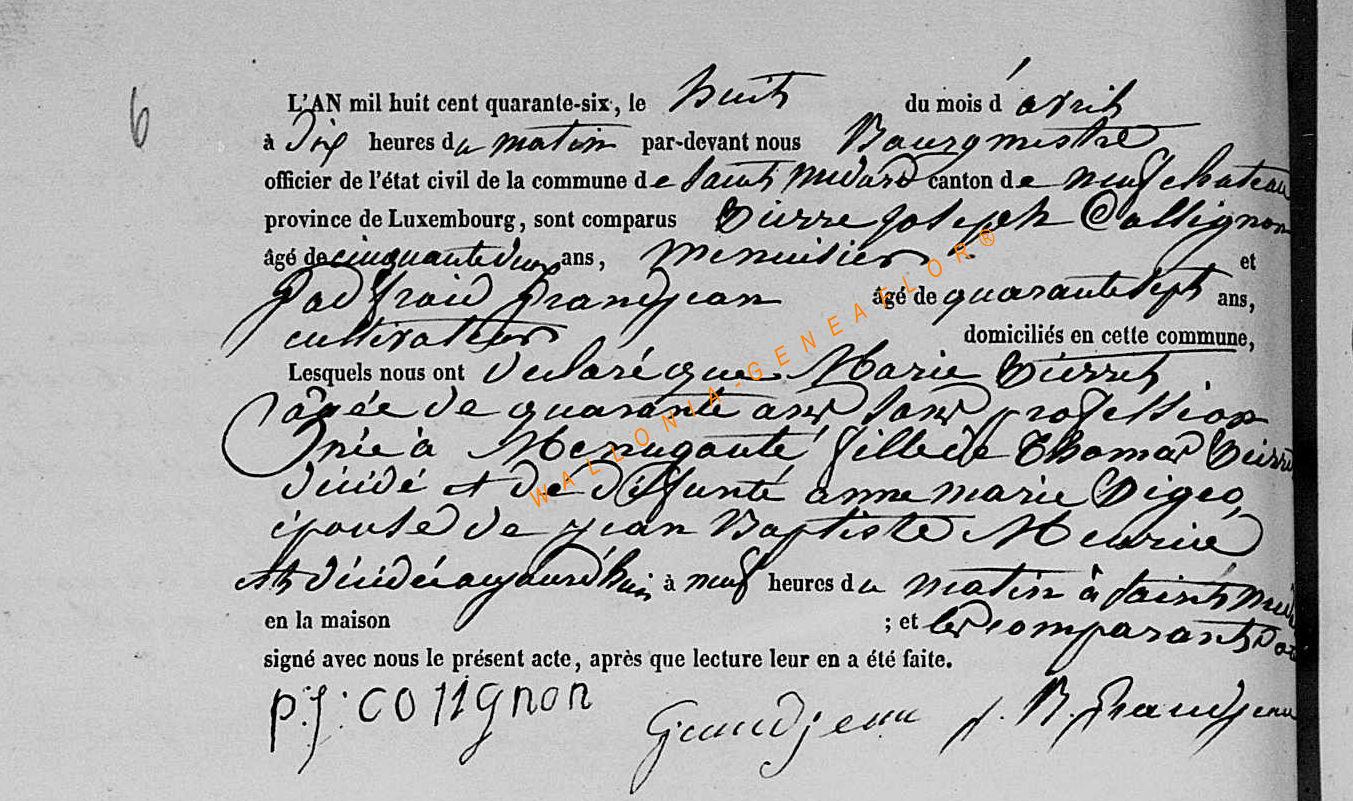 6
L'AN mil huit cent quarante-six, le huit du mois d'avril
à Dix heures du matin par-devant nous Bourgmestre
officier de l'état civil de la commune de Saint Médard canton de neufchateau
province de Luxembourg, sont comparus Pierre joseph Collignon
âgé de cinquante deux ans, menuisier et
Godfroid Grandjean âgé de quarante sept ans,
cultivateur domiciliés en cette commune,
Lesquels nous ont déclaré que Marie Pierret
âgée de quarante ans sans profession
née à Menugoutte fille de Thomas Pierret
décédé et de défunte anne marie
épouse de jean Baptiste
est décédée aujourd'hui à neuf heures du matin à Saint Méd
en la maison ; et les comparants ont
signé avec nous le présent acte, après que lecture leur en a été faite.
p.j: collignon
Grandjean J. B. Grandjean
WALLONIA-GENEAFLOR®